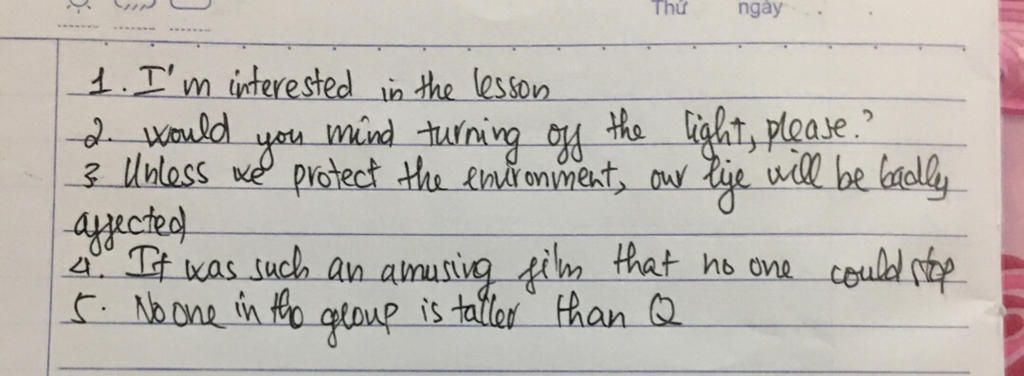 Thứ ngày
1. I'm interested in the lesson
2. would you mind turning off the light, please.?
3 Unless we protect the environment, our life will be badly
affected
4. It was such an amusing film that no one could stop
5. No one in the group is taller than Q